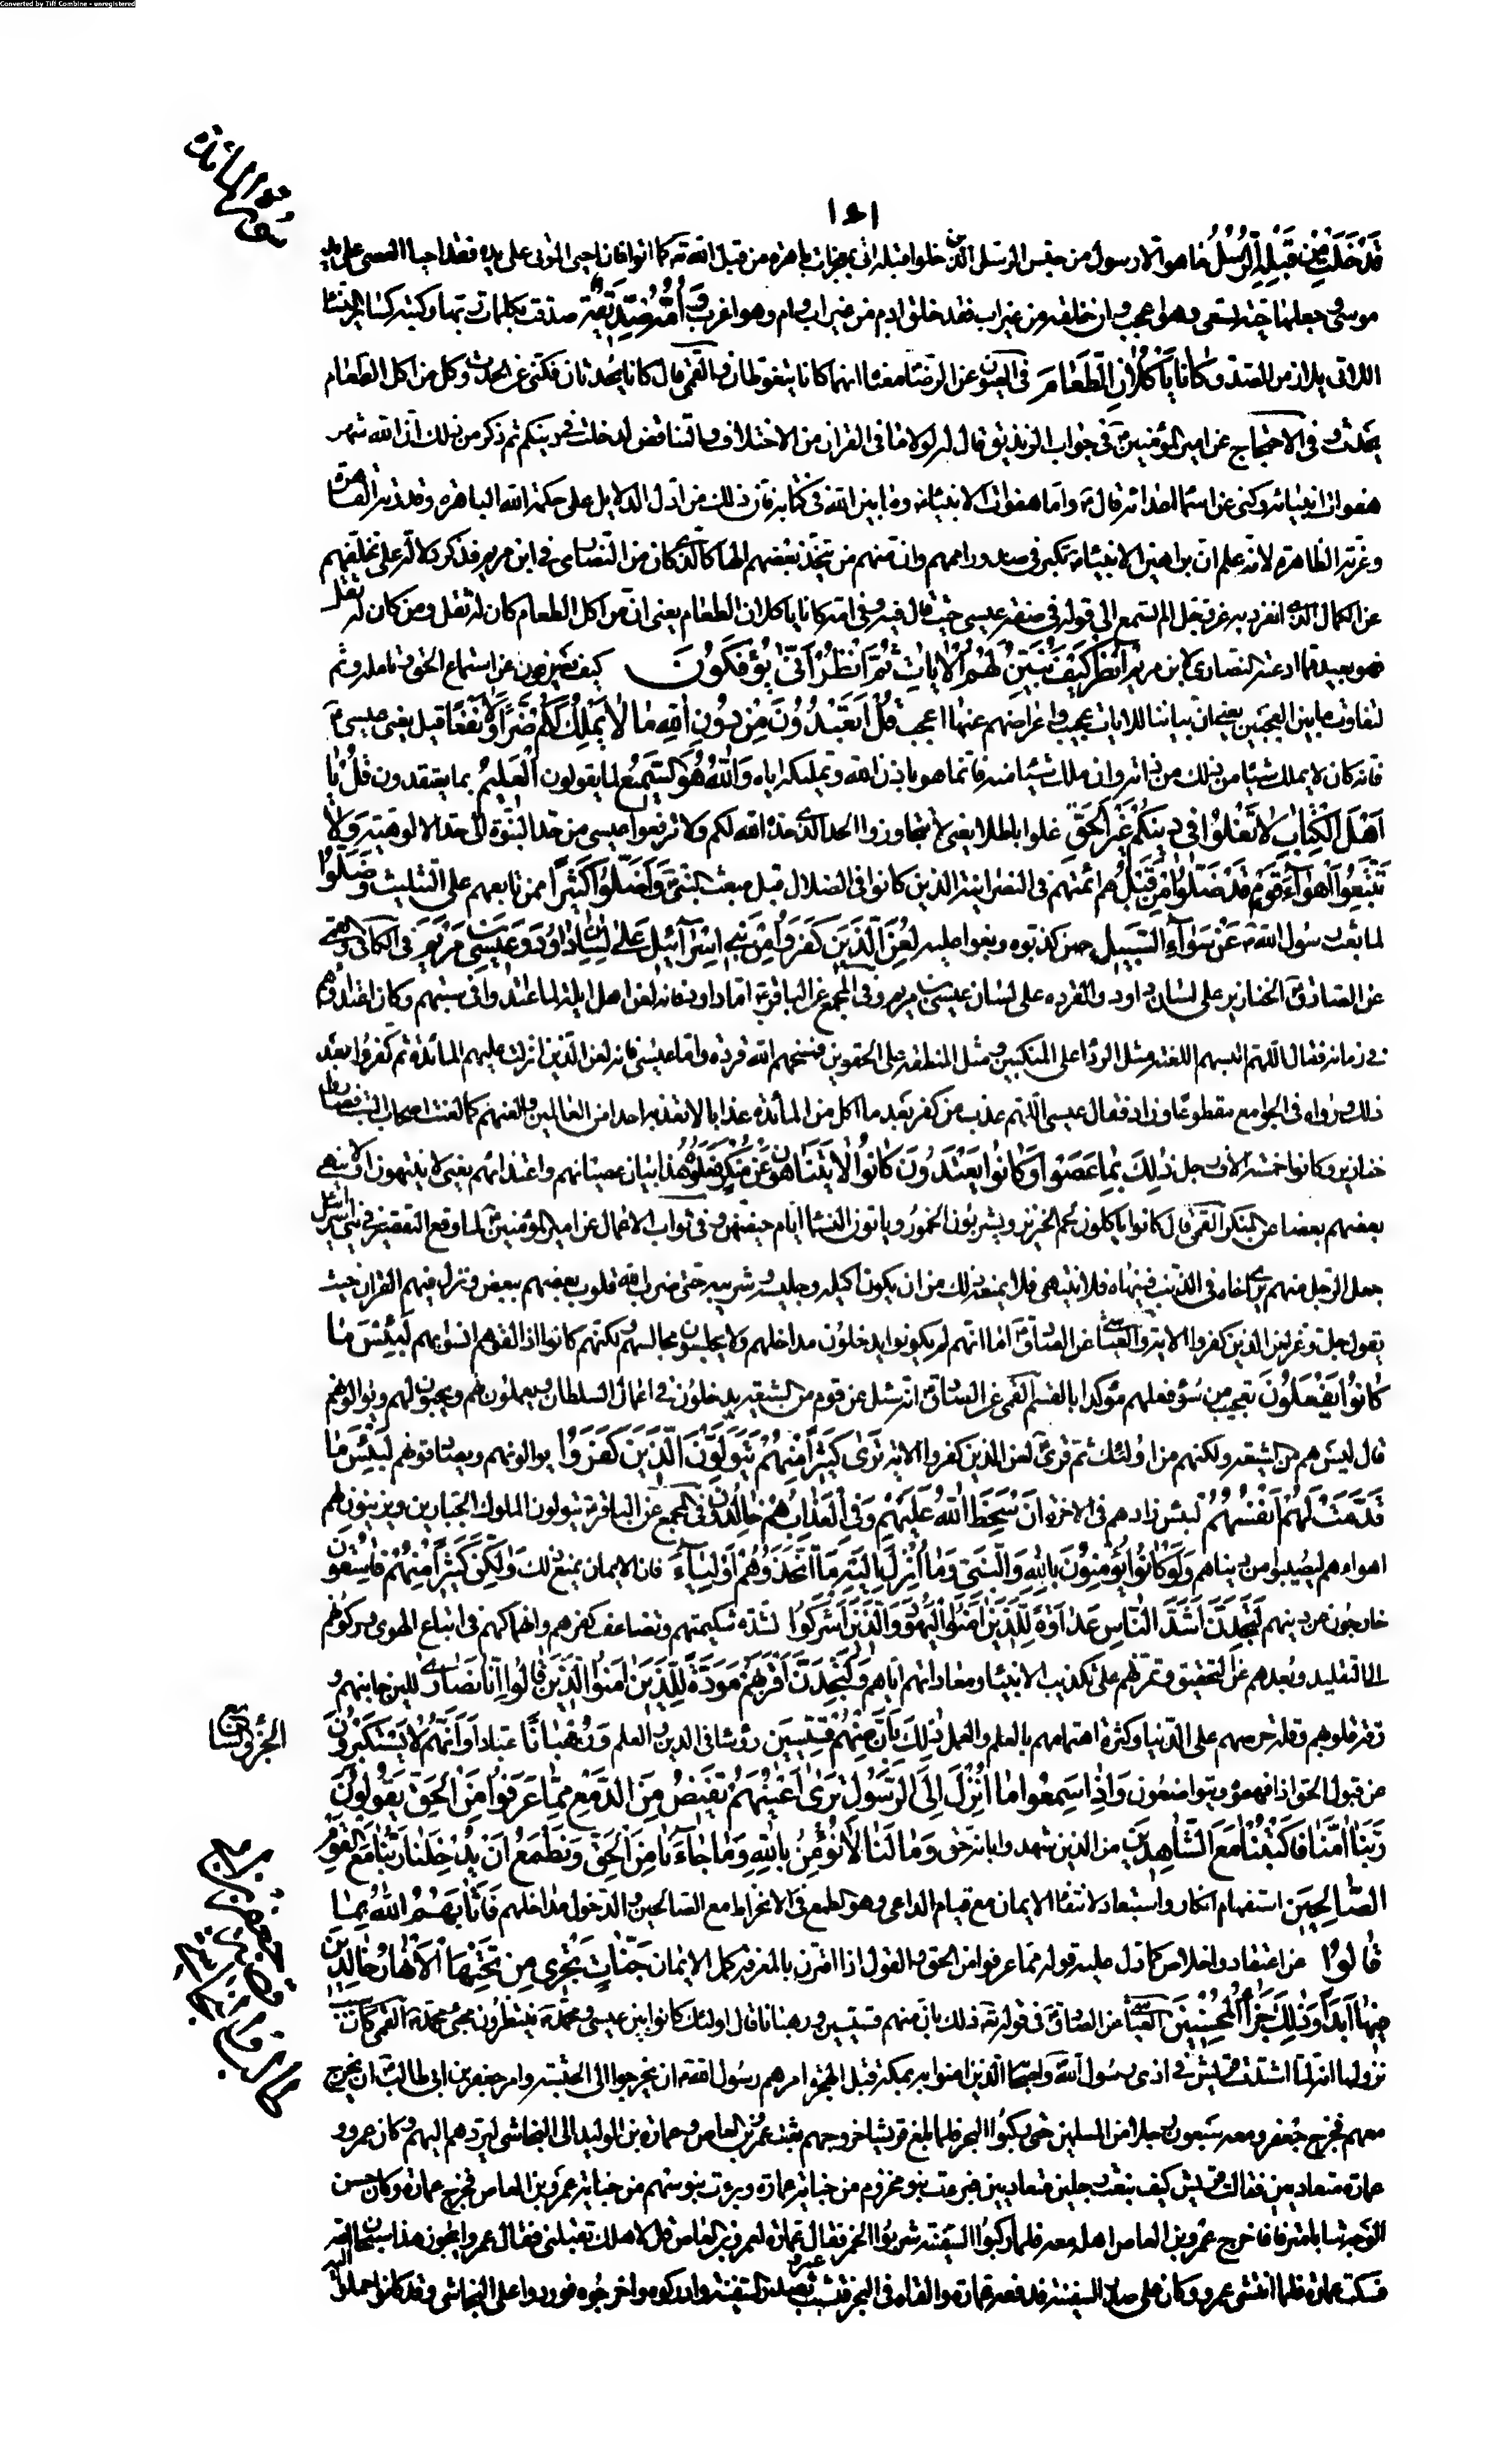 Converted by Tiff Combine - unregistered
سورة المائدة
١٥١
قَدْ خَلَتْ مِنْ قَبْلِهِ الرُّسُلُ ما هو الا رسول من جنس الرسل الذين خلوا قبله اتى بمعجزات باهرة من قبل الله كما اتوا فان احيى الموتى على يده فقد احيا العصى على يد
موسى وجعلها حية تسعى وهو اعجب وان خلقه من غير اب فقد خلق ادم من غير اب وام وهو اغرب وَأُمُّهُ صِدِّيقَةٌ صدقت بكلمات ربها وكتبه كسائر النساء
اللاتى يلازمن الصدق كانا يَأْكُلانِ الطَّعامَ فى العيون عن الرضا معناه انهما كانا يتغوطان والقمى قال كانا يحدثان فكنى عن الحدث وكل من اكل الطعام
يحدث وفى الاحتجاج عن امير المؤمنين فى جواب الزنديق قال له لولا ما فى القران من الاختلاف والتناقض لدخلت فى دينكم ثم ذكر من ذلك ان الله شهر
هفوات انبيائه وكنى عن اسماء اعدائه قال واما هفوات الانبياء وما بينه الله فى كتابه فان ذلك من ادل الدلايل على حكمة الله الباهرة وقدرته القاهرة
وعزته الظاهرة لانه علم ان براهين الانبياء تكبر فى صدور اممهم وان منهم من يتخذ بعضهم الها كالذى كان من النصارى فى ابن مريم فذكر دلالة على تخلفهم
عن الكمال الذى انفرد به عز وجل الم تسمع الى قوله فى صفة عيسى حيث قال فيه وفى امه كانا ياكلان الطعام يعنى ان من اكل الطعام كان له ثقل ومن كان له ثقل
فهو بعيد مما ادعته النصارى لابن مريم انْظُرْ كَيْفَ نُبَيِّنُ لَهُمُ الْآياتِ ثُمَّ انْظُرْ أَنَّى يُؤْفَكُونَ كيف يصرفون عن استماع الحق وتامله وثم
لتفاوت ما بين العجبين يعنى ان بياننا للايات عجيب واعراضهم عنها اعجب قُلْ أَتَعْبُدُونَ مِنْ دُونِ اللَّهِ ما لا يَمْلِكُ لَكُمْ ضَرًّا وَلا نَفْعاً قيل يعنى عيسى
فانه كان لا يملك شيئا من ذلك من ذاته وان ملك شيئا منه فانما هو باذن الله وتمليكه اياه وَاللَّهُ هُوَ السَّمِيعُ لما يقولون الْعَلِيمُ بما يعتقدون قُلْ يا
أَهْلَ الْكِتابِ لا تَغْلُوا فِي دِينِكُمْ غَيْرَ الْحَقِّ غلوا باطلا يعنى لا تتجاوزوا الحد الذى حده الله لكم ولا ترفعوا عيسى من حد النبوة الى حد الالوهية وَلا
تَتَّبِعُوا أَهْواءَ قَوْمٍ قَدْ ضَلُّوا مِنْ قَبْلُ هم ائمتهم فى النصرانية الذين كانوا فى الضلال قبل مبعث النبى وَأَضَلُّوا كَثِيراً ممن تابعهم على التثليث وَضَلُّوا
لما بعث رسول الله عَنْ سَواءِ السَّبِيلِ حين كذبوه وبغوا عليه لُعِنَ الَّذِينَ كَفَرُوا مِنْ بَنِي إِسْرائِيلَ عَلى لِسانِ داوُدَ وَعِيسَى ابْنِ مَرْيَمَ فى الكافى والقمى
عن الصادق الخنازير على لسان داود والقردة على لسان عيسى بن مريم وفى المجمع عن الباقر اما داود فانه لعن اهل ايلة لما اعتدوا فى سبتهم وكان اعتداؤهم
فى زمانه فقال اللهم البسهم اللعنة مثل الرداء على المنكبين ومثل المنطقة على الحقوين فمسخهم الله قردة واما عيسى فانه لعن الذين انزلت عليهم المائدة ثم كفروا بعد
ذلك ورواه فى الجوامع مقطوعا وزاد فقال عيسى اللهم عذب من كفر بعد ما اكل من المائدة عذابا لا تعذبه احدا من العالمين والعنهم كما لعنت اصحاب السبت فصاروا
خنازير وكانوا خمسة الاف رجل ذلِكَ بِما عَصَوْا وَكانُوا يَعْتَدُونَ كانُوا لا يَتَناهَوْنَ عَنْ مُنكَرٍ فَعَلُوهُ هذا بيان عصيانهم واعتدائهم يعنى لا ينتهون اولا ينهى
بعضهم بعضا عن المنكر القمى قال كانوا ياكلون لحم الخنزير ويشربون الخمور وياتون النساء ايام حيضهن وفى ثواب الاعمال عن امير المؤمنين لما وقع التقصير فى بنى اسرائيل
جعل الرجل منهم يرى اخاه فى الذنب فينهاه فلا ينتهى فلا يمنعه ذلك من ان يكون اكيله وجليسه وشريبه حتى ضرب الله قلوب بعضهم ببعض ونزل فيهم القران حيث
يقول جل وعز لعن الذين كفروا الاية والعياشى عن الصادق اما انهم لم يكونوا يدخلون مداخلهم ولا يجلسون مجالسهم لكنهم كانوا اذا لقوهم انسوا بهم لَبِئْسَ ما
كانُوا يَفْعَلُونَ تعجيب من سوء فعلهم مؤكدا بالقسم القمى عن الصادق انه سئل عن قوم من الشيعة يدخلون فى اعمال السلطان ويعملون لهم ويحبون لهم ويوالونهم
قال ليس هم من الشيعة ولكنهم من اولئك ثم قرئ لعن الذين كفروا الاية تَرى كَثِيراً مِنْهُمْ يَتَوَلَّوْنَ الَّذِينَ كَفَرُوا يوالونهم ويصادقونهم لَبِئْسَ ما
قَدَّمَتْ لَهُمْ أَنْفُسُهُمْ لبئس زادهم فى الاخرة أَنْ سَخِطَ اللَّهُ عَلَيْهِمْ وَفِي الْعَذابِ هُمْ خالِدُونَ فى المجمع عن الباقر يتولون الملوك الجبارين ويزينون لهم
اهواءهم ليصيبوا من دنياهم وَلَوْ كانُوا يُؤْمِنُونَ بِاللَّهِ وَالنَّبِيِّ وَما أُنْزِلَ إِلَيْهِ مَا اتَّخَذُوهُمْ أَوْلِياءَ فان الايمان يمنع ذلك وَلكِنَّ كَثِيراً مِنْهُمْ فاسِقُونَ
خارجون من دينهم لَتَجِدَنَّ أَشَدَّ النَّاسِ عَداوَةً لِلَّذِينَ آمَنُوا الْيَهُودَ وَالَّذِينَ أَشْرَكُوا لشدة شكيمتهم وتضاعف كفرهم وانهماكهم فى اتباع الهوى وركونهم
الى التقليد وبعدهم عن التحقيق وتمرنهم على تكذيب الانبياء ومعاداتهم اياهم وَلَتَجِدَنَّ أَقْرَبَهُمْ مَوَدَّةً لِلَّذِينَ آمَنُوا الَّذِينَ قالُوا إِنَّا نَصارى للين جانبهم و
رقة قلوبهم وقلة حرصهم على الدنيا وكثرة اهتمامهم بالعلم والعمل ذلِكَ بِأَنَّ مِنْهُمْ قِسِّيسِينَ رؤساء فى الدين والعلم وَرُهْباناً عبادا وَأَنَّهُمْ لا يَسْتَكْبِرُونَ
الجزؤ السابع
عن قبول الحق اذا فهموه ويتواضعون وَإِذا سَمِعُوا ما أُنْزِلَ إِلَى الرَّسُولِ تَرى أَعْيُنَهُمْ تَفِيضُ مِنَ الدَّمْعِ مِمَّا عَرَفُوا مِنَ الْحَقِّ يَقُولُونَ
رَبَّنا آمَنَّا فَاكْتُبْنا مَعَ الشَّاهِدِينَ من الذين شهدوا بانه حق وَما لَنا لا نُؤْمِنُ بِاللَّهِ وَما جاءَنا مِنَ الْحَقِّ وَنَطْمَعُ أَنْ يُدْخِلَنا رَبُّنا مَعَ الْقَوْمِ
الصَّالِحِينَ استفهام انكار واستبعاد لانتفاء الايمان مع قيام الداعى وهو الطمع فى الانخراط مع الصالحين والدخول مداخلهم فَأَثابَهُمُ اللَّهُ بِما
قالُوا عن اعتقاد واخلاص كما دل عليه قوله مما عرفوا من الحق والقول اذا اقترن بالمعرفة كمل الايمان جَنَّاتٍ تَجْرِي مِنْ تَحْتِهَا الْأَنْهارُ خالِدِينَ
فِيها أَبَداً وَذلِكَ جَزاءُ الْمُحْسِنِينَ العياشى عن الصادق فى قوله تعالى ذلك بان منهم قسيسين ورهبانا قال اولئك كانوا بين عيسى ومحمد ينتظرون مجئ محمد القمى كان سبب
نزولها انه لما اشتدت قريش فى اذى رسول الله واصحابه الذين امنوا به بمكة قبل الهجرة امرهم رسول الله ان يخرجوا الى الحبشة وامر جعفر بن ابى طالب ان يخرج
معهم فخرج جعفر ومعه سبعون رجلا من المسلمين حتى ركبوا البحر فلما بلغ قريشا خروجهم بعثوا عمرو بن العاص وعمارة بن الوليد الى النجاشى ليردهم اليهم وكان عمرو و
عمارة متعاديين فقالت قريش كيف نبعث رجلين متعاديين فبرئت بنو مخزوم من جناية عمارة وبرئت بنو سهم من جناية عمرو بن العاص فخرج عمارة وكان حسن
الوجه شابا مترفا فاخرج عمرو بن العاص اهله معه فلما ركبوا السفينة شربوا الخمر فقال عمارة لعمرو بن العاص قل لاهلك تقبلنى فقال عمرو ايجوز هذا سبحان الله
فسكت عمارة فلما انتشى عمرو وكان على صدر السفينة فدفعه عمارة والقاه فى البحر فتشبث عمرو بصدر السفينة وادركوه واخرجوه فوردوا على النجاشى وقد كانوا حملوا اليه